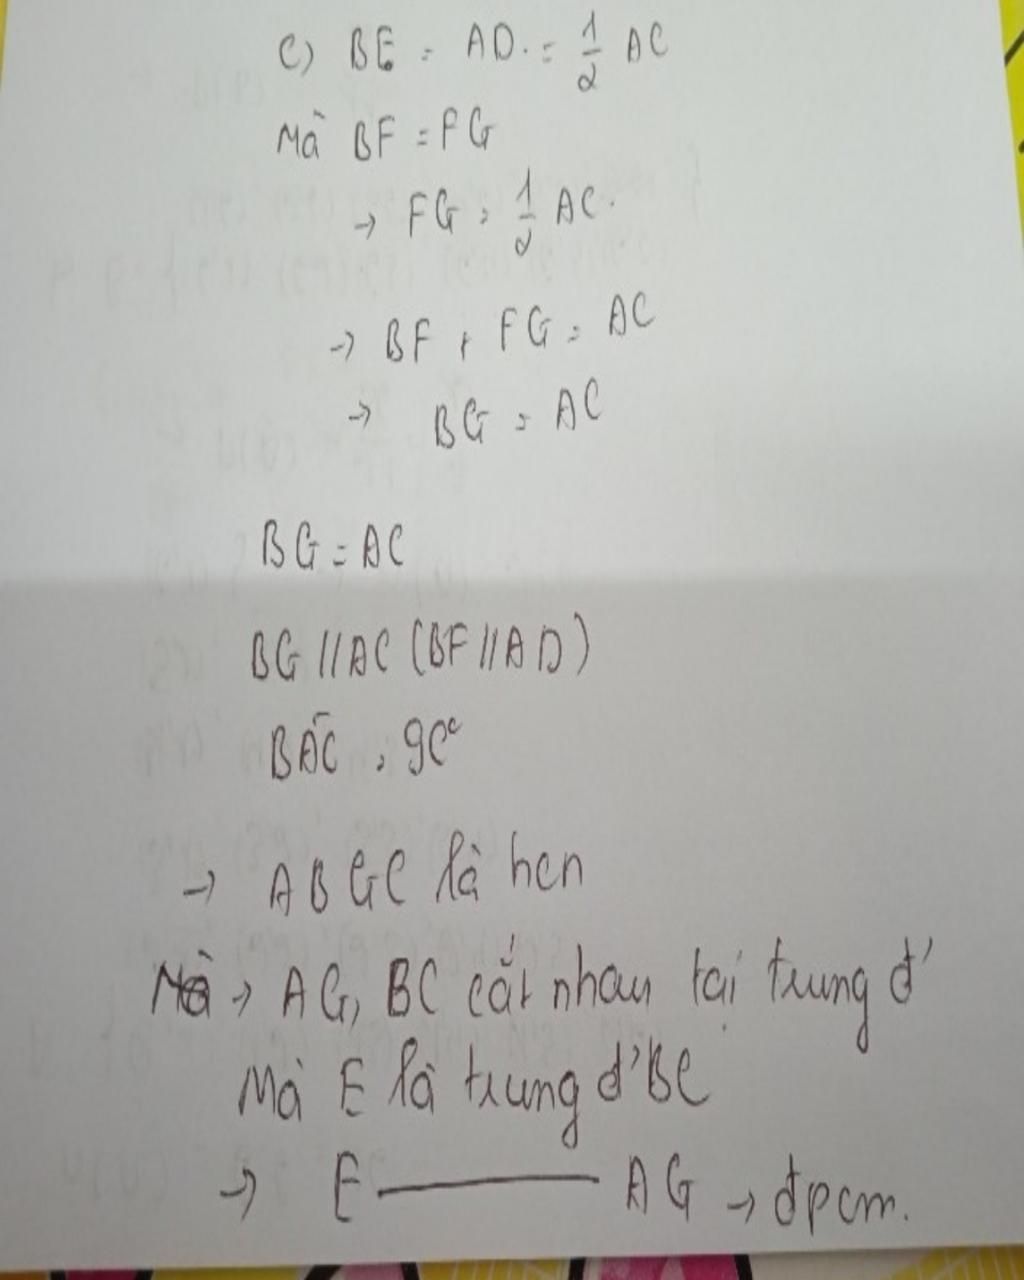 c) BE = AD. = 1/2 AC
Mà BF = FG
→ FG = 1/2 AC.
→ BF + FG = AC
→ BG = AC
BG = AC
BG // AC (BF // AD)
BAC = 90°
→ ABGC là hcn
→ AG, BC cắt nhau tại trung đ'
Mà E là trung đ' BC
→ E —— AG → đpcm.